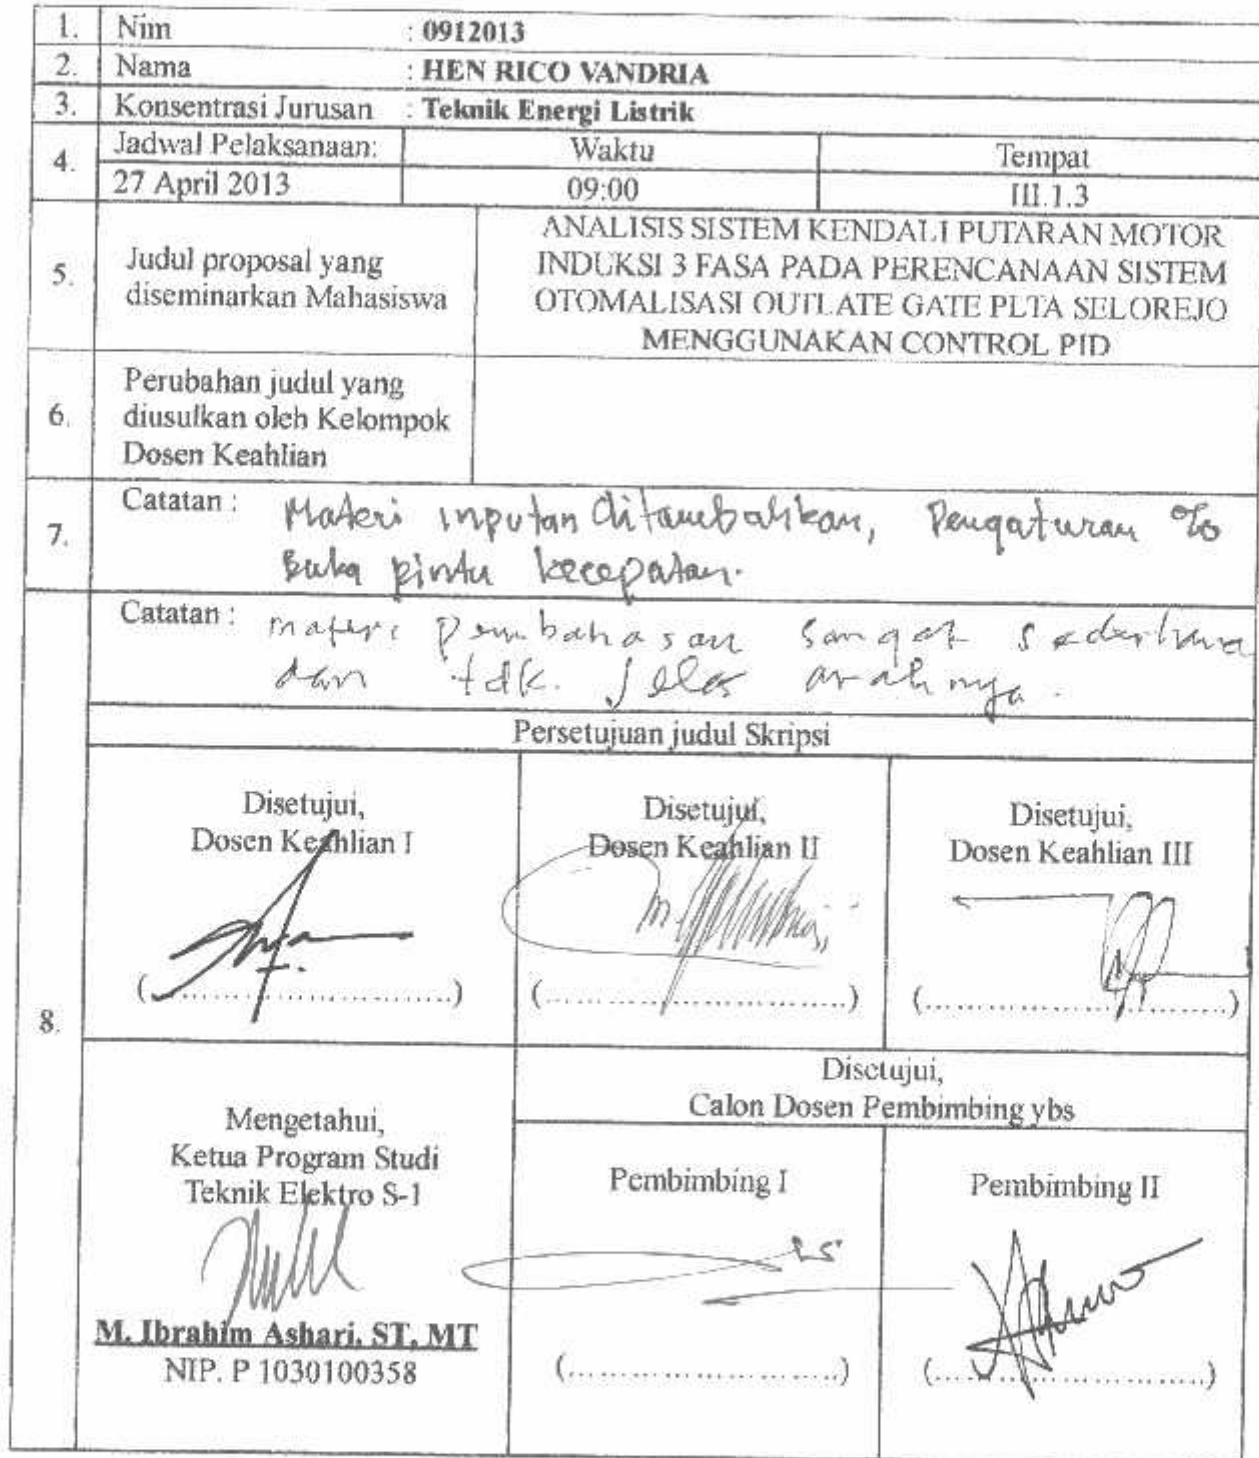 1. Nim : 0912013
2. Nama : HEN RICO VANDRIA
3. Konsentrasi Jurusan : Teknik Energi Listrik
4. Jadwal Pelaksanaan: Waktu Tempat
27 April 2013 09:00 III.1.3
5. Judul proposal yang
diseminarkan Mahasiswa
ANALISIS SISTEM KENDALI PUTARAN MOTOR
INDUKSI 3 FASA PADA PERENCANAAN SISTEM
OTOMALISASI OUTLATE GATE PLTA SELOREJO
MENGGUNAKAN CONTROL PID
6. Perubahan judul yang
diusulkan oleh Kelompok
Dosen Keahlian
7. Catatan : Materi inputan ditambahkan, Pengaturan %
Buka pintu kecepatan.
8. Catatan : materi pembahasan sangat sederhana
dan tdk. jelas arahnya.
Persetujuan judul Skripsi
Disetujui,
Dosen Keahlian I
(..............................)
Disetujui,
Dosen Keahlian II
(..............................)
Disetujui,
Dosen Keahlian III
(..............................)
Mengetahui,
Ketua Program Studi
Teknik Elektro S-1
M. Ibrahim Ashari, ST, MT
NIP. P 1030100358
Disetujui,
Calon Dosen Pembimbing ybs
Pembimbing I
(..............................)
Pembimbing II
(..............................)